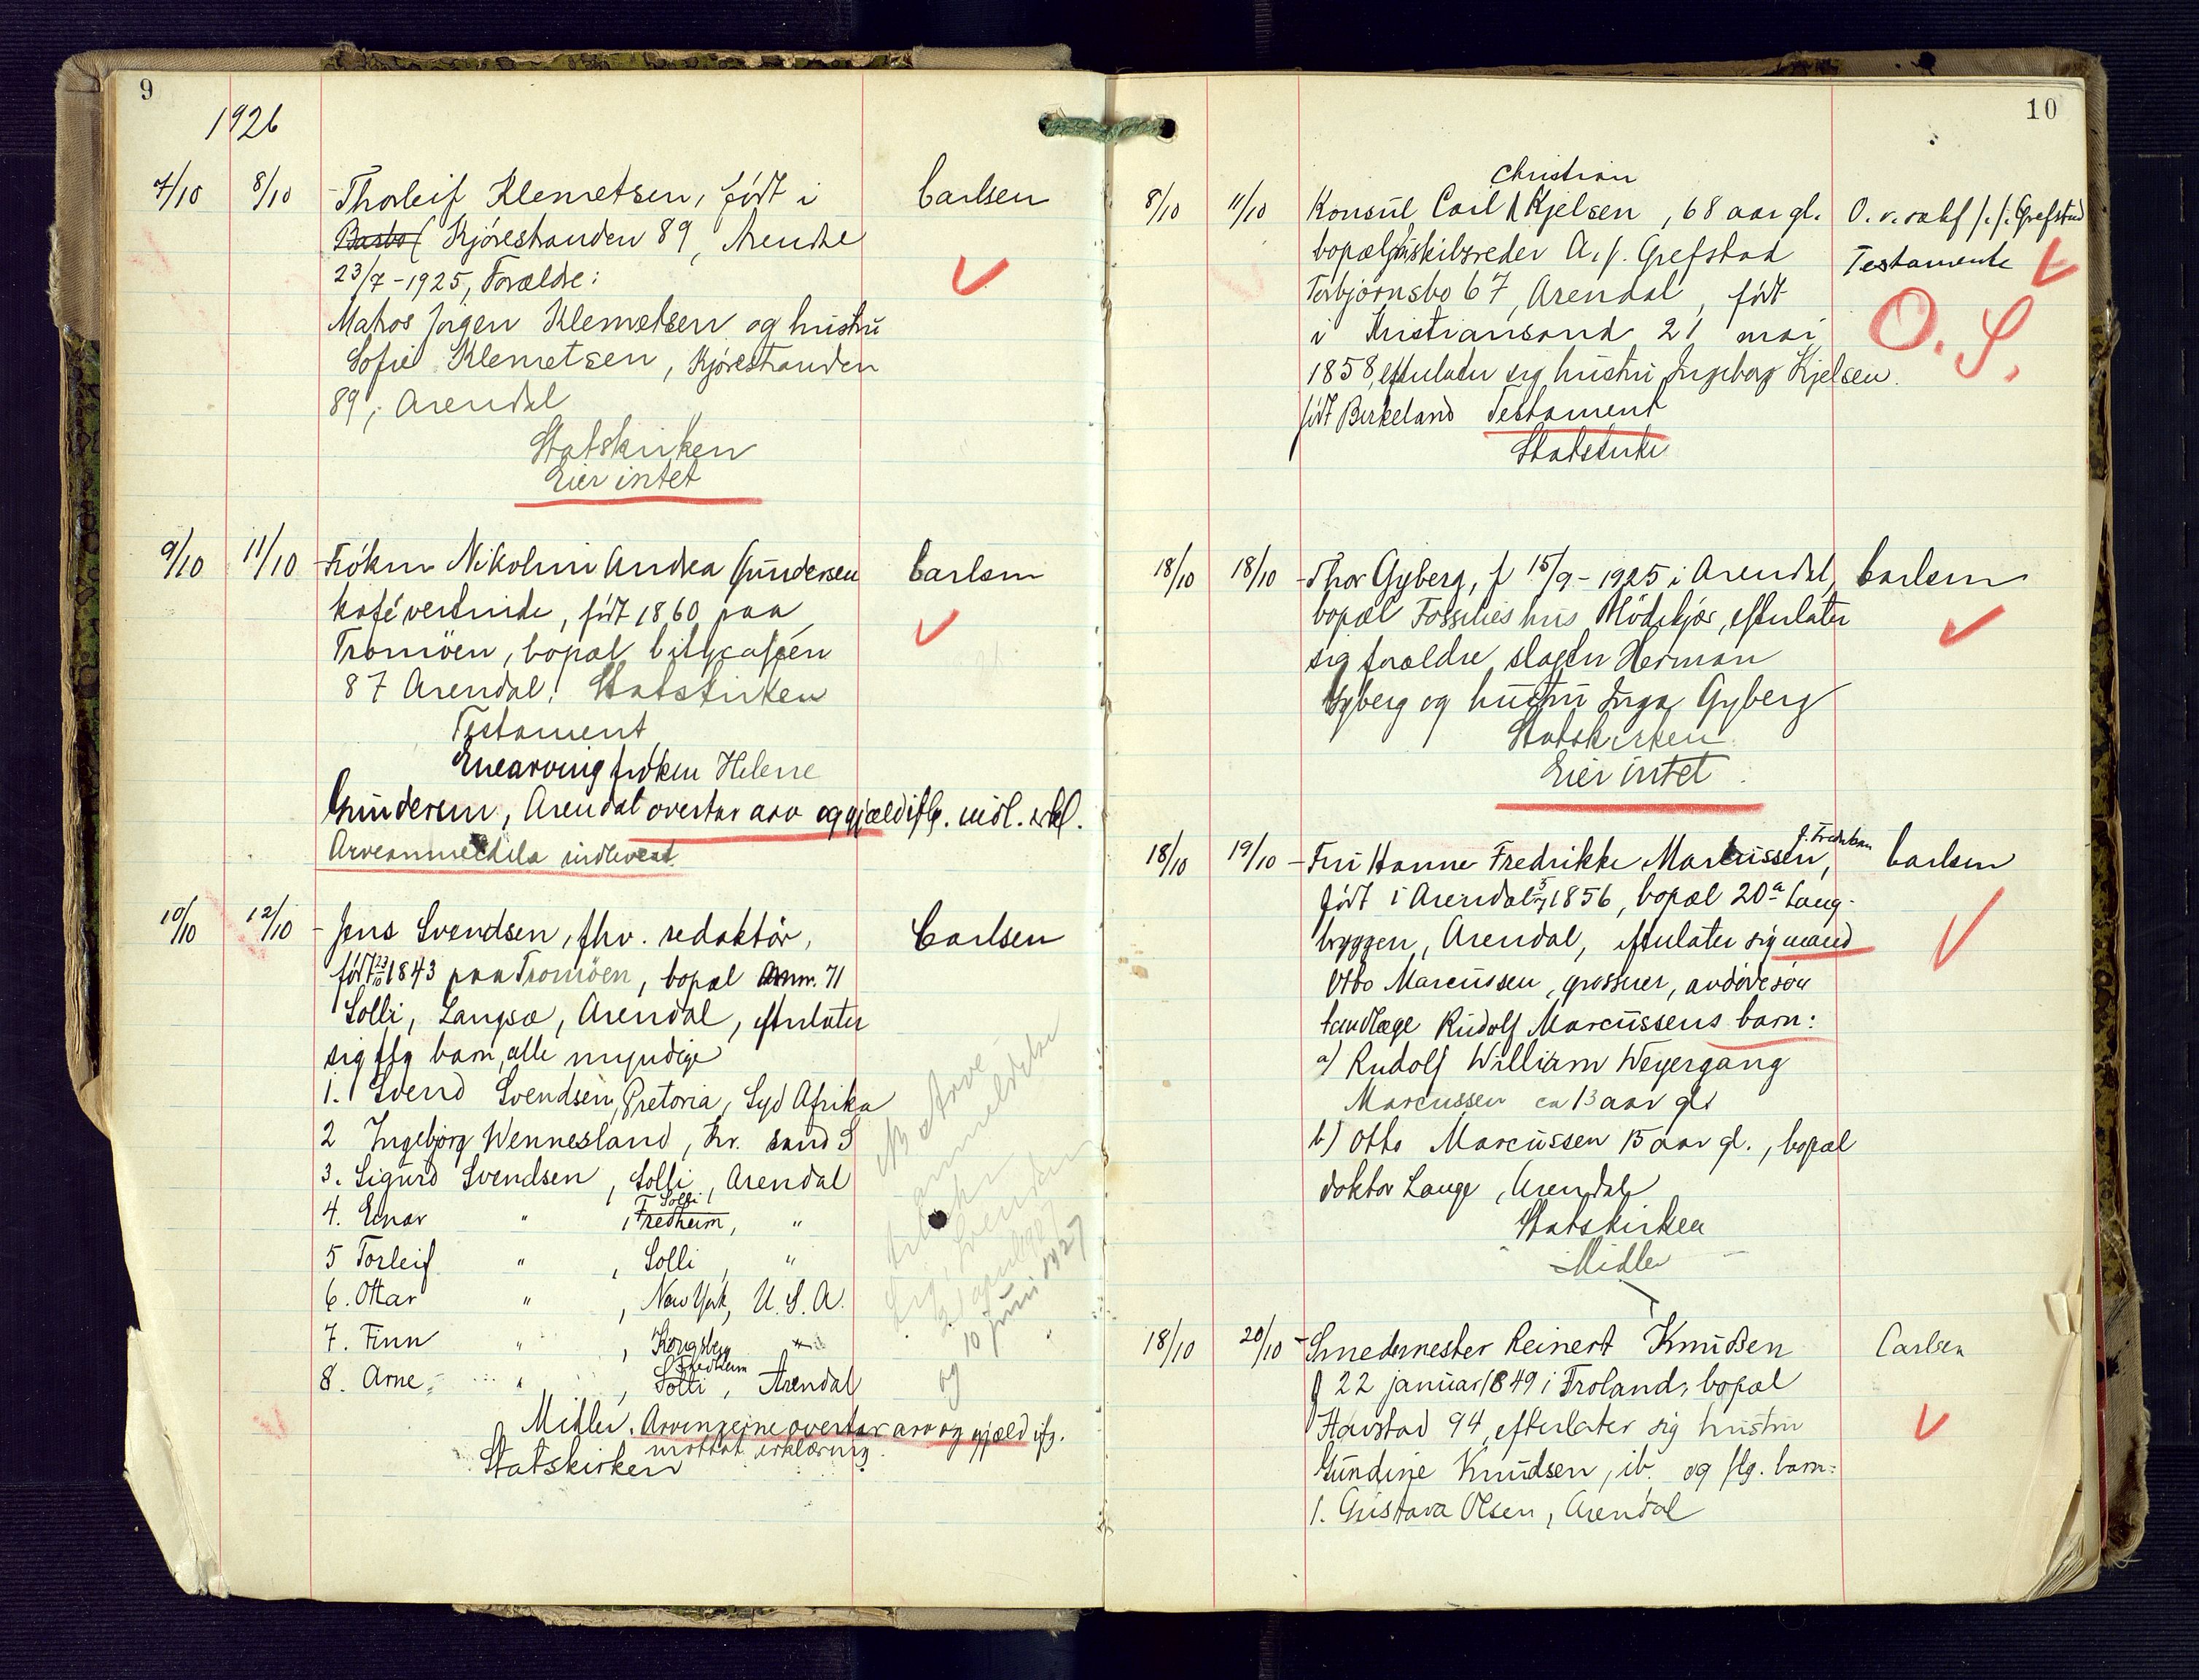 9
1926
7/10 8/10 Thorleif Klemetsen, født i Carlsen
Barbo Kjørestranden 89, Arendal
23/7-1925, Forældre:
Matros Jørgen Klemetsen og hustru
Sofie Klemetsen, Kjørestranden
89, Arendal
Statskirken
Eier intet
9/10 11/10 Frøken Nikoline Andrea Gundersen Carlsen
kafévertinde, født 1860 paa
Tromöen, bopæl Citycaféen
87 Arendal. Statskirken
Testament
Enearving frøken Helene
Gundersen, Arendal overtar arv og gjæld iflg. indl. erkl.
Arveanmeldelse indlevert
10/10 12/10 Jens Svendsen, fhv. redaktör, Carlsen
født 1843 paa Tromöen, bopæl nr. 71
Solli, Langsæ, Arendal, efterlater
sig flg barn, alle myndige
1. Svend Svendsen, Pretoria, Syd Afrika
2 Ingebjørg Wennesland, Kr. sand S
3. Sigurd Svendsen, Solli, Arendal
Solli
4. Einar " , Fredheim, "
5 Torleif " , Solli, "
6. Ottar " , New York, U. S. A.
7. Finn " , Kongsberg
Fredheim
8. Arne " , Solli, Arendal
Midler. Arvingerne overtar arv og gjæld ifg.
mottat erklæring.
Statskirken
Arve-
anmeldelse
21 april 1927
og 10 juni 1927
10
Christian
8/10 11/10 Konsul Carl Kjelsen, 68 aar gl. O. v. sakf. Grefstad
bopæl skibsreder A. J. Grefstad Testamente
Torbjørnsbo 67, Arendal, født
i Kristiansand 21 mai O. S.
1858, efterlater sig hustru Ingeborg Kjelsen.
født Birkeland Testament
Statskirke
18/10 18/10 Thor Gyberg, f 15/9-1925 i Arendal, Carlsen
bopæl Fossties hus Mödekjær, efterlater
sig forældre slagter Herman
Gyberg og hustru Inga Gyberg
Statskirken
Eier intet.
18/10 19/10 Fru Hanne Fredrikke Marcussen, Carlsen
født i Arendal 1856, bopæl 20a Lang-
bryggen, Arendal, efterlater sig mand
Otto Marcussen, grosserer, avdøde søn
tandlæge Rudolf Marcussens barn:
a) Rudolf William Weyergang
Marcussen ca 13 aar gl.
b) Otto Marcussen 15 aar gl., bopæl
doktor Lange, Arendal
Statskirken
Midler
18/10 20/10 Smedemester Reinert Knudsen Carlsen
f 22 januar 1849 i Froland, bopæl
Havstad 94, efterlater sig hustru
Gundine Knudsen, ib. og flg. barn:
1. Gustava Olsen, Arendal